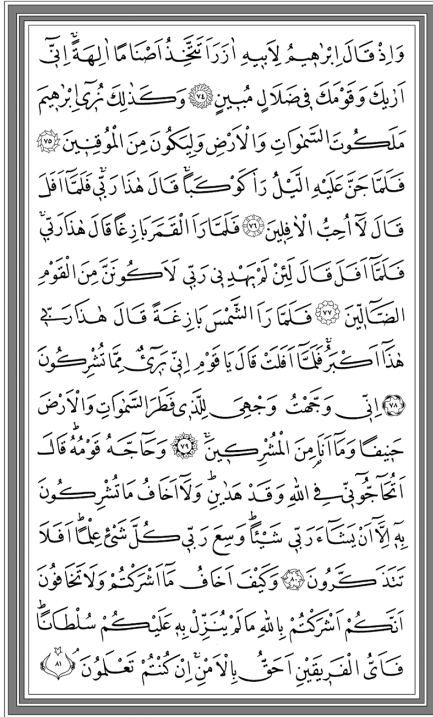 وَاِذْ قَالَ اِبْرٰه۪يمُ لِاَب۪يهِ اٰزَرَ اَتَتَّخِذُ اَصْنَامًا اٰلِهَةًۚ اِنّ۪ٓي
اَرٰيكَ وَقَوْمَكَ ف۪ي ضَلَالٍ مُب۪ينٍ ﴿٧٤﴾ وَكَذٰلِكَ نُر۪ٓي اِبْرٰه۪يمَ
مَلَكُوتَ السَّمٰوَاتِ وَالْاَرْضِ وَلِيَكُونَ مِنَ الْمُوقِن۪ينَ ﴿٧٥﴾
فَلَمَّا جَنَّ عَلَيْهِ الَّيْلُ رَاٰ كَوْكَبًاۚ قَالَ هٰذَا رَبّ۪يۚ فَلَمَّٓا اَفَلَ
قَالَ لَٓا اُحِبُّ الْاٰفِل۪ينَ ﴿٧٦﴾ فَلَمَّا رَاَ الْقَمَرَ بَازِغًا قَالَ هٰذَا رَبّ۪يۚ
فَلَمَّٓا اَفَلَ قَالَ لَئِنْ لَمْ يَهْدِن۪ي رَبّ۪ي لَاَكُونَنَّ مِنَ الْقَوْمِ
الضَّٓالّ۪ينَ ﴿٧٧﴾ فَلَمَّا رَاَ الشَّمْسَ بَازِغَةً قَالَ هٰذَا رَبّ۪ي
هٰذَٓا اَكْبَرُۚ فَلَمَّٓا اَفَلَتْ قَالَ يَا قَوْمِ اِنّ۪ي بَر۪ٓيءٌ مِمَّا تُشْرِكُونَ
﴿٧٨﴾ اِنّ۪ي وَجَّهْتُ وَجْهِيَ لِلَّذ۪ي فَطَرَ السَّمٰوَاتِ وَالْاَرْضَ
حَن۪يفًا وَمَٓا اَنَا۬ مِنَ الْمُشْرِك۪ينَۚ ﴿٧٩﴾ وَحَٓاجَّهُ قَوْمُهُۜ قَالَ
اَتُحَٓاجُّٓونّ۪ي فِي اللّٰهِ وَقَدْ هَدٰينِۜ وَلَٓا اَخَافُ مَا تُشْرِكُونَ
بِه۪ٓ اِلَّٓا اَنْ يَشَٓاءَ رَبّ۪ي شَيْـًٔاۜ وَسِعَ رَبّ۪ي كُلَّ شَيْءٍ عِلْمًاۜ اَفَلَا
تَتَذَكَّرُونَ ﴿٨٠﴾ وَكَيْفَ اَخَافُ مَٓا اَشْرَكْتُمْ وَلَا تَخَافُونَ
اَنَّكُمْ اَشْرَكْتُمْ بِاللّٰهِ مَا لَمْ يُنَزِّلْ بِه۪ عَلَيْكُمْ سُلْطَانًاۜ
فَاَيُّ الْفَر۪يقَيْنِ اَحَقُّ بِالْاَمْنِۚ اِنْ كُنْتُمْ تَعْلَمُونَۢ ﴿٨١﴾